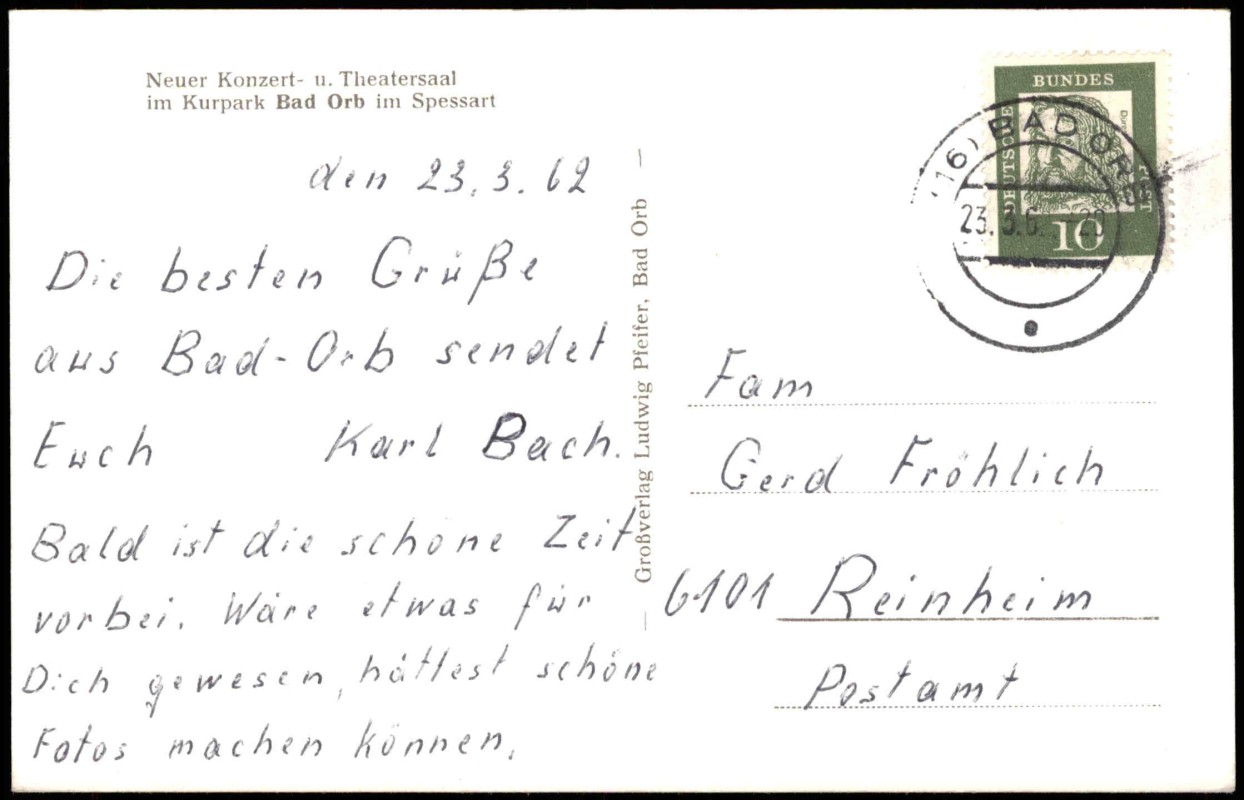 Neuer Konzert- u. Theatersaal
im Kurpark Bad Orb im Spessart
den 23.3.62
Die besten Grüße
aus Bad-Orb sendet
Euch Karl Bach.
Bald ist die schöne Zeit
vorbei. Wäre etwas für
Dich gewesen, hättest schöne
Fotos machen können.
Großverlag Ludwig Pfeifer, Bad Orb
DEUTSCHE
BUNDES
POST
10
(16) BAD ORB
23.3.6 -20
Fam
Gerd Fröhlich
6101 Reinheim
Postamt